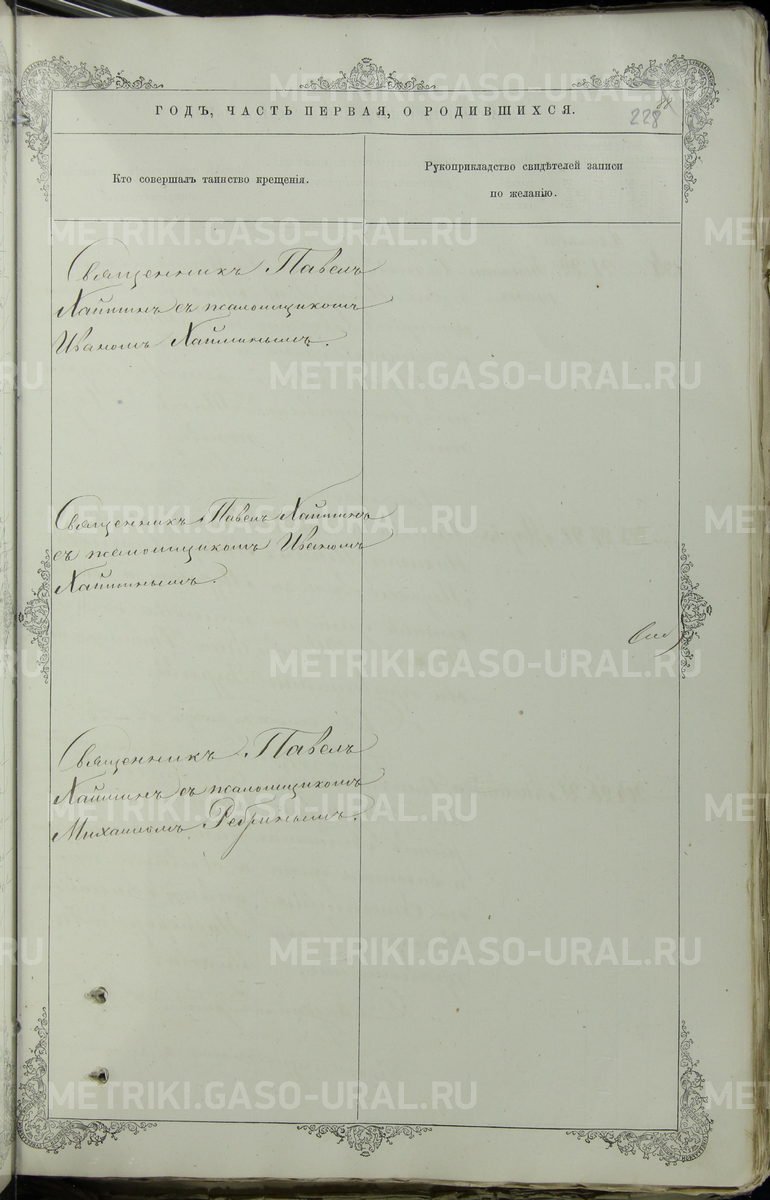 ГОДЪ, ЧАСТЬ ПЕРВАЯ, О РОДИВШИХСЯ.
228
Кто совершалъ таинство крещенія.
Рукоприкладство свидѣтелей записи
по желанію.
Священникъ Павелъ
Хайминъ съ псаломщикомъ
Иваномъ Хайминымъ.
Священникъ Павелъ Хайминъ
съ псаломщикомъ Иваномъ
Хайминымъ.
Священникъ Павелъ
Хайминъ съ псаломщикомъ
Михаиломъ Ребринымъ.
METRIKI.GASO-URAL.RU